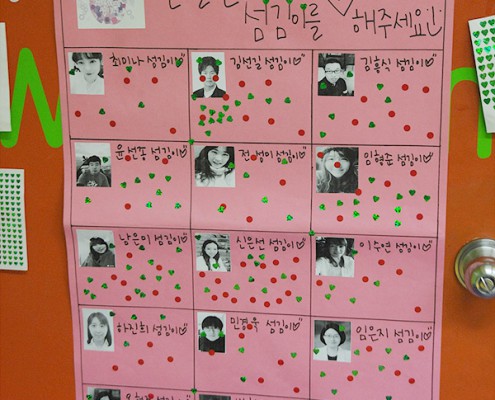 섬김이를
해주세요!
최미나 섬김이♡
김성길 섬김이♡
김홍식 섬김이♡
윤선종 섬김이♡
전성미 섬김이♡
임형준 섬김이♡
남은미 섬김이♡
신은선 섬김이♡
이수연 섬김이♡
하진희 섬김이♡
민경욱 섬김이♡
임은지 섬김이♡